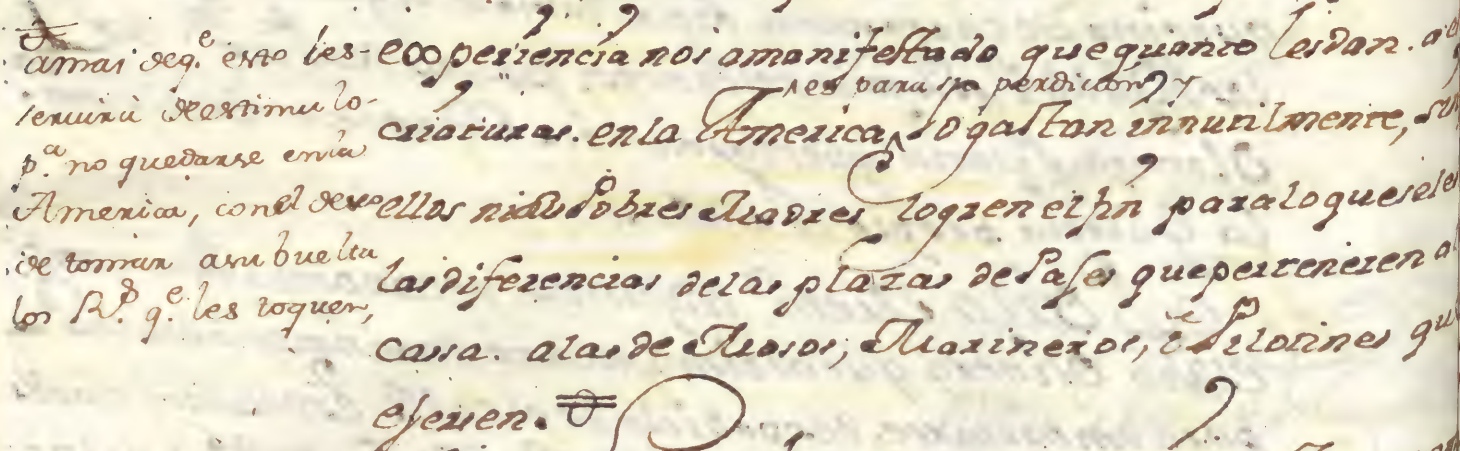 amas de q.e esto les
servirà de estimulo
p.a no quedarse en la
America, con el deseo
de tomar a su buelta
los R.s q.e les toquen,
experiencia nos a manifestado que quanto les dan. a
criaturas. en la America, lo gastan innutilmente,
les para su perdicion y
ellos ni sus Pobres Madres logren el fin para lo que se les
las diferencias de las plazas de Pajes que pertenecen a
cassa. a las de Mosos, Marineros, è Pilotines qu
ejersen.